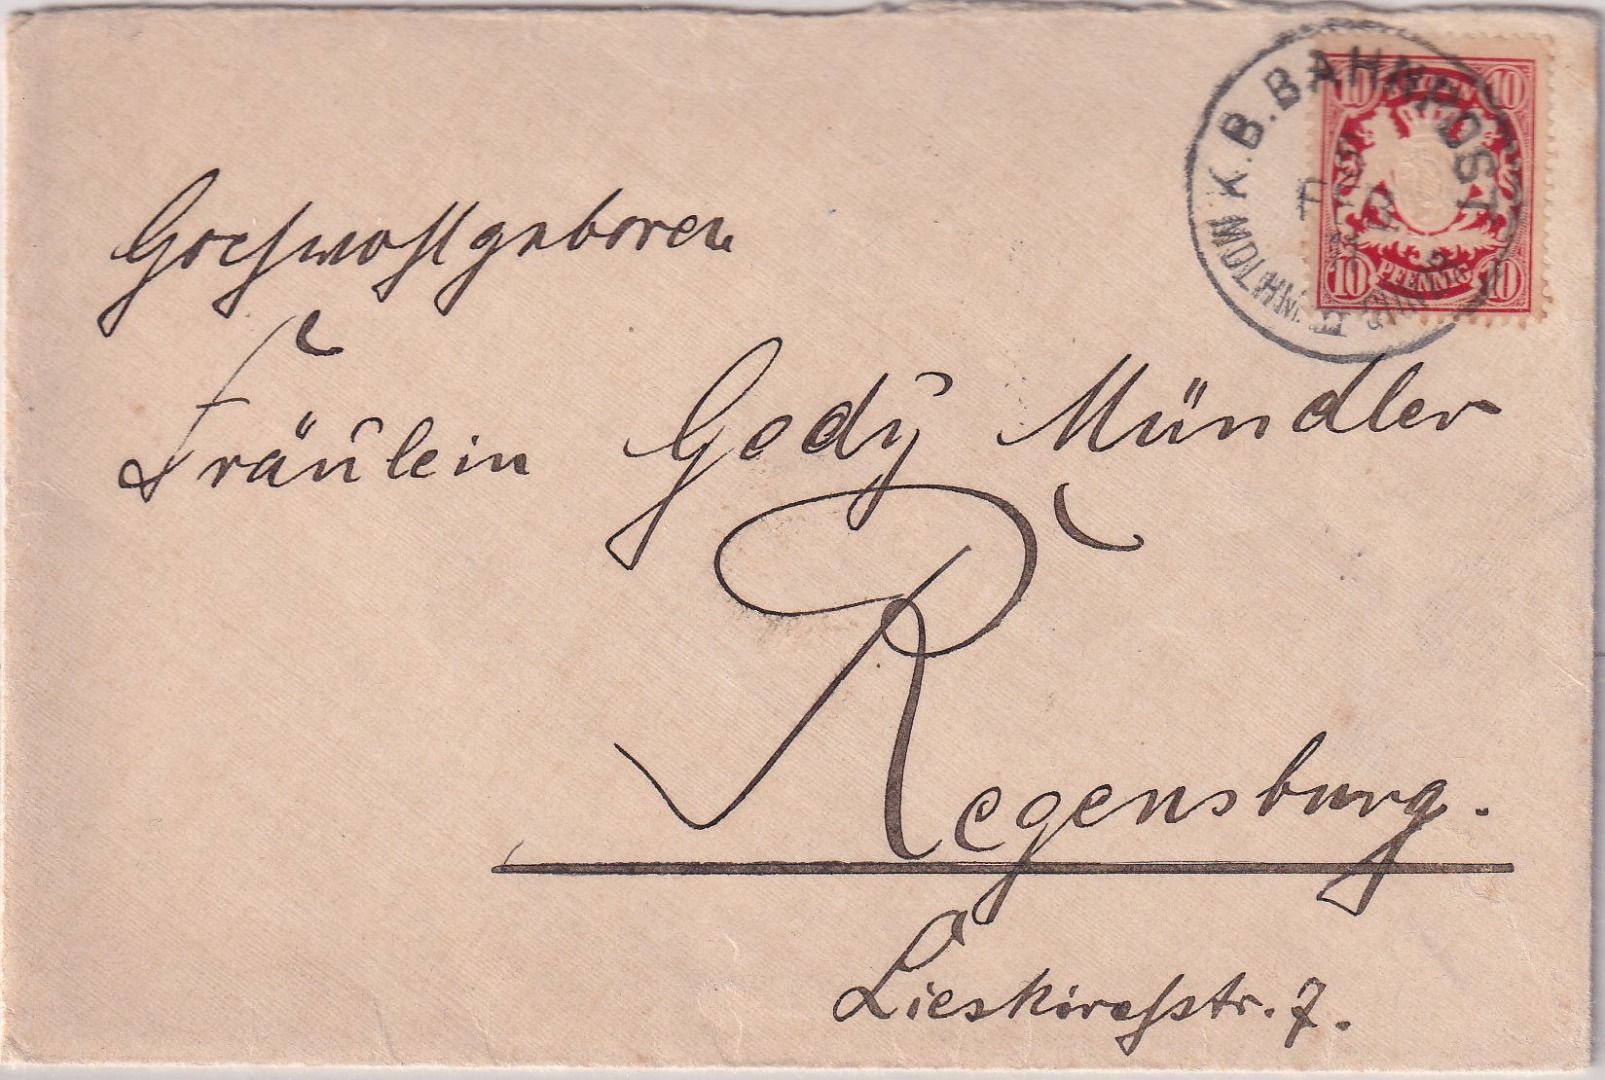 K.B. BAHNPOST
10 10
10 PFENNIG 10
Hochwohlgeboren
Fräulein Gody Mündler
Regensburg.
Lieskirchstr. 7.